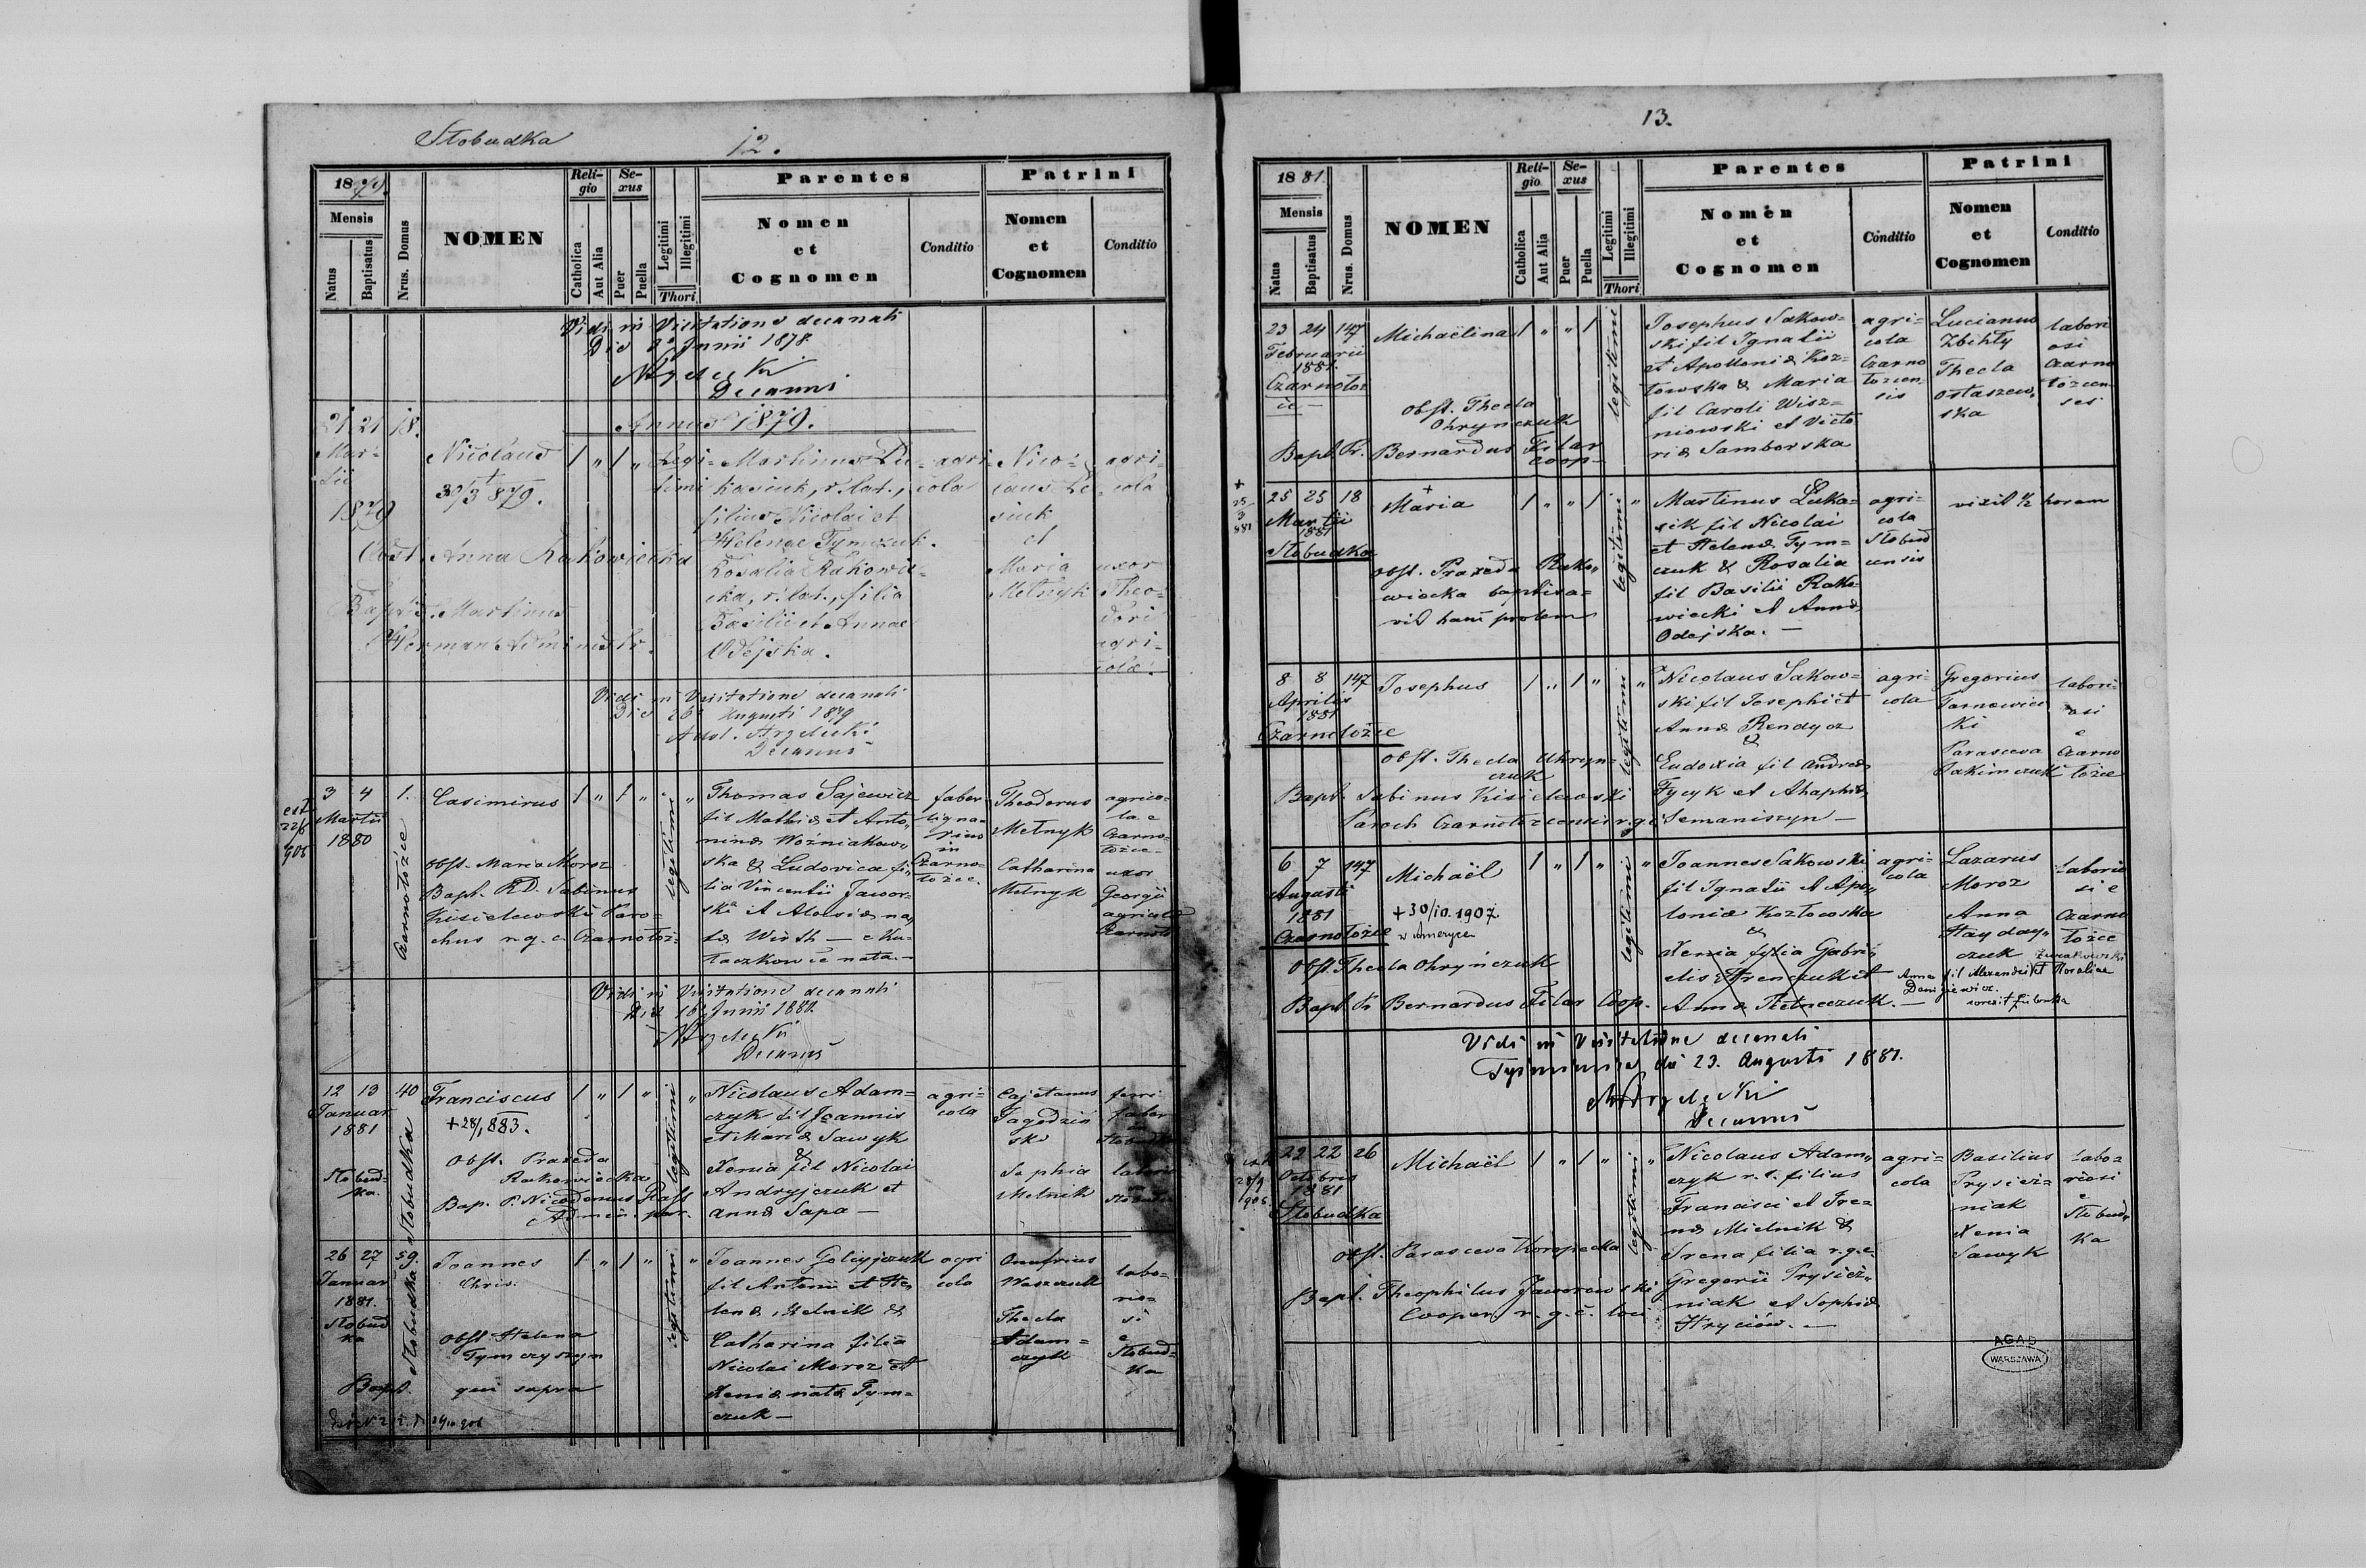 Slobudka
12.
1879.
Mensis
Natus
Baptisatus
Nrus. Domus
NOMEN
Reli-
gio
Catholica
Aut Alia
Se-
xus
Puer
Puella
Legitimi
Illegitimi
Thori
Parentes
Nomen
et
Cognomen
Conditio
Patrini
Nomen
et
Cognomen
Conditio
Vidi in Visitatione decanali
Die Junii 1878.
Decanus
Annus 1879.
21 21 18.
Mar-
tii
1879
Nicolaus
+
30/3 879.
Obst. Anna Rakowiecka
Bapt. Martinus
Herman Administr.
1 „ 1 „ Legi-
timi
Martinus Lu-
kasiuk, r. lat.,
filius Nicolai et
Helenae Tymczuk.
Rosalia Rakowie-
cka, r. lat., filia
Basilii et Annae
Odejska.
agri-
cola
Nico-
laus Le-
siuk
et
Maria
Melnyk
agri-
cola
uxor
Theo-
dori
agri-
colae.
Vidi in Visitatione decanali
Die 26 Augusti 1879
Decanus
3 4 1.
Martii
1880
Czarnołożce
Casimirus
obst. Maria Moroz
Bapt. RD. Sabinus
Kisielewski Paro-
chus r. g. c. Czarnołoz.
1 „ 1 „ legitimi „
Thomas Sajewicz
fil Mathiæ et Anto-
ninæ Woźniakow-
ska & Ludovica fi-
lia Vincentii Jawor-
ski et Aloisiæ na-
tæ Wirth — e Ku-
taczkowce nata.—
faber
ligna-
rius
in
Czarno-
łozce.
Theodorus
Melnyk
Catharina
Melnyk
agrico-
la e
Czarno-
łozce
uxor
Georgii
agricola
Czarnoło
Vidi in Visitatione decanali
Die 16 Junii 1880.
Decanus
12 13 40
Januar
1881
Słobud-
ka.
Słobudka
Franciscus
+28/1 883.
Obst. Praxeda
Rakowiecka
Bap. P. Nicodemus Raff
Admin. par.
1 „ 1 „ legitimi „
Nicolaus Adam-
czyk fil Joannis
et Mariæ Sawyk
&
Xenia fil Nicolai
Andryjczuk et
Annæ Sapa —
agri-
cola
Cajetanus
Jagodziń
ski
Sophia
Melnik
ferri
faber
in
Słobudka
26 27 59.
Januar
1881.
Słobud
ka
Słobudka
Joannes
Chris.
Obst. Helena
Tymczyszyn
Bapt. qui supra
1 „ 1 „ legitimi „
Joannes Golijczuk
fil Antonii et He-
lenæ Melnik &
Catharina filia
Nicolai Moroz et
Xeniæ nata Tym-
czuk —
agri
cola
Onufrius
Waszczuk
Thecla
Adam-
czyk
labo-
rio-
si
e
Słobud-
ka
13.
1881
Mensis
Natus
Baptisatus
Nrus. Domus
NOMEN
Reli-
gio
Catholica
Aut Alia
Se-
xus
Puer
Puella
Legitimi
Illegitimi
Thori
Parentes
Nomen
et
Cognomen
Conditio
Patrini
Nomen
et
Cognomen
Conditio
23 24 147
Februarii
1881.
Czarnołoz
ce —
Michaëlina
Obst. Thecla
Ohrynczuk
Bapt Fr. Bernardus Filar
Coop—
1 „ „ 1 legitimi
Josephus Sakow-
ski fil Ignatii
et Apolloniæ Koz-
łowska & Maria
fil Caroli Wisz-
niowski et Victo
riæ Samborska
agri-
cola
Czarno
łozcen-
sis
Lucianus
Zbihły
Thecla
Ostaszew-
ska
labori
osi
Czarno
łozcen-
ses
+
25
3
881
25 25 18
Martii
1881
Słobudka
+
Maria
obst. Praxeda Rako-
wiecka baptisa-
vit hanc prolem
1 „ „ 1 legitimi „
Martinus Luka-
sik fil Nicolai
et Helenæ Tym-
czuk & Rosalia
fil Basilii Rako-
wiecki et Annæ
Odejska. —
agri-
cola
Słobud
censis
vixit ½ horam
8 8 147
Aprilis
1881
Czarnołożce
Josephus
obst. Thecla Uhryn-
czuk
Bapt. Sabinus Kisielewski
Paroch Czarnołozcensis r. g. c
1 „ 1 „ legitimi „
Nicolaus Sakow-
ski fil Josephi et
Annæ Rendycz
&
Eudoxia fil Andreæ
Fycyk et Ahaphiæ
Semaniszyn —
agri-
cola
Gregorius
Tarnowiec
ki
Parasceva
Jakimczuk
labori-
osi
e
Czarno
łozce
6 7 147
Augusti
1881
Czarnołożce
Michaël
+30/10. 1907.
w Ameryce
Obst. Thecla Ohryńczuk
Bapt Fr Bernardus Filar Coop.
1 „ 1 „ legitimi „
Joannes Sakowski
fil Ignatii et Apo-
loniæ Kozłowska
&
Xenia filia Gabri-
elis Hrenczuk et
Annæ
agri-
cola
Lazarus
Moroz
Anna
Hayday-
czuk
laborio
si e
Czarno
łożce
Anna fil Alexandri et Rosaliae
22 22 26
Octobris
1881
Słobudka
Michaël
obst. Parasceva Koropecka
Bapt. Theophilus Jaworowski
Cooper r. g. c. loci
1 „ 1 „ legitimi „
Nicolaus Adam-
czyk r. l. filius
Francisci et Ire-
næ Mielnik &
Irena filia r. g. c.
Gregorii Prysież-
niak et Sophiæ
Hryciów. —
agri-
cola
Basilius
Prysież-
niak
Xenia
Sawyk
labo-
riosi
e
Słobud-
ka
Vidi in Visitatione decanali
die 23. Augusti 1881.
Decanus
AGAD
WARSZAWA